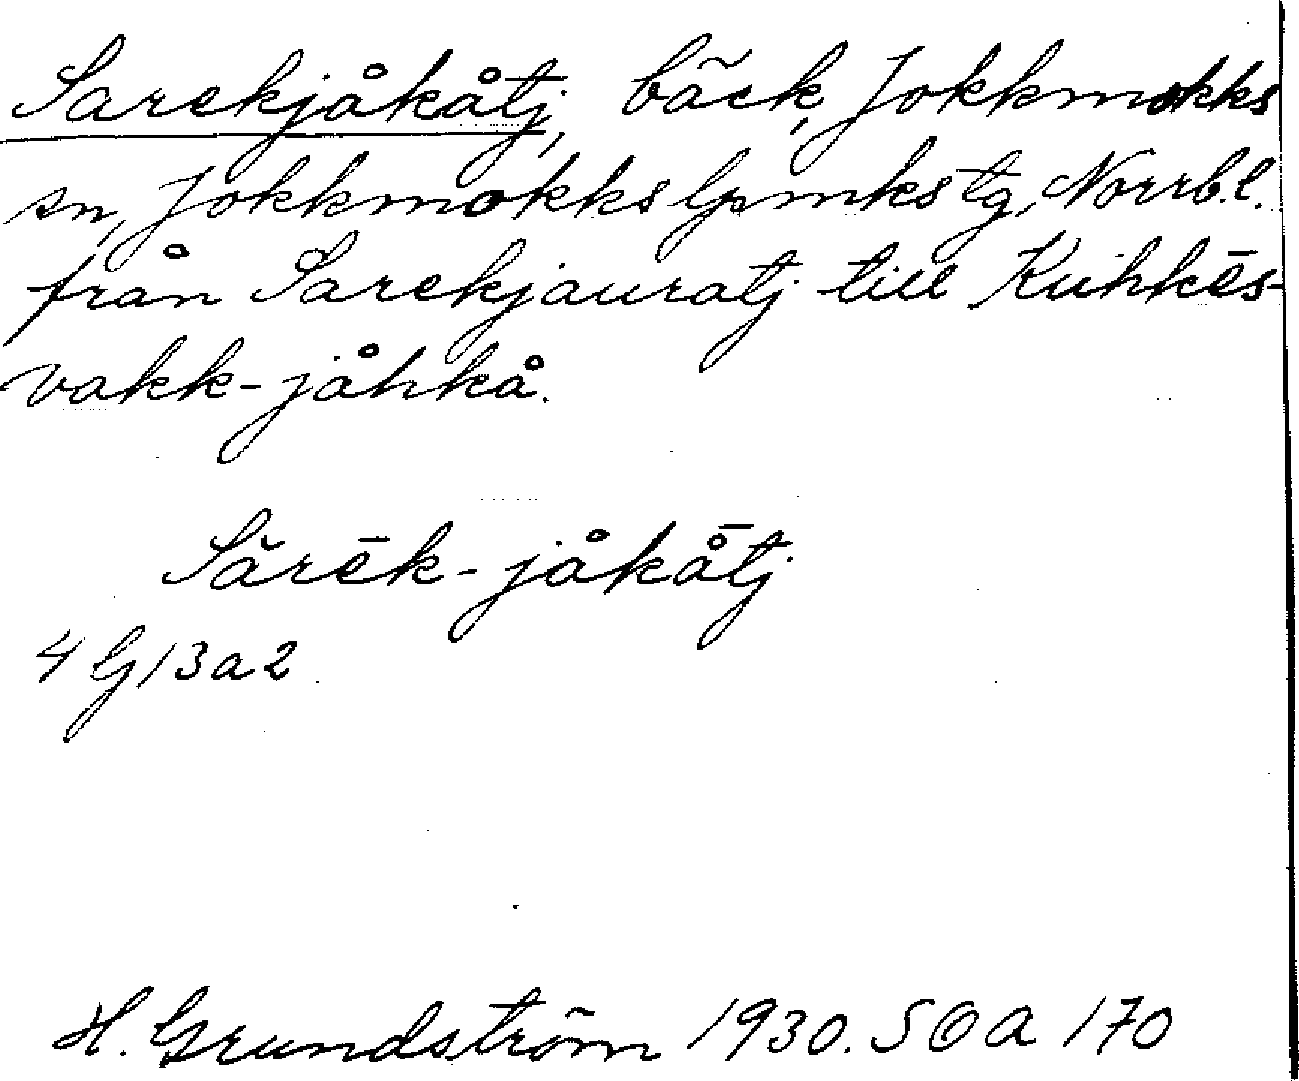 Sarekjåkåtj, bäck, Jokkmokks
sn, Jokkmokks lpmks tg, Norrb.l.
från Sarekjauratj till Kuhkēs-
vakk-jåhkå.
Sārēk-jåkå̄tj
4 G 13 a 2
H. Grundström 1930. SOA 170